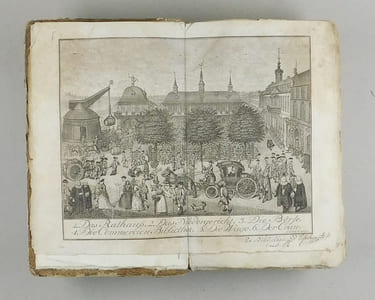 1. Das Rathaus. 2. Das Niedergericht. 3. Die Börse.
4. Die Commercien Bibliothec. 5. Die Wage. 6. Der Cran.